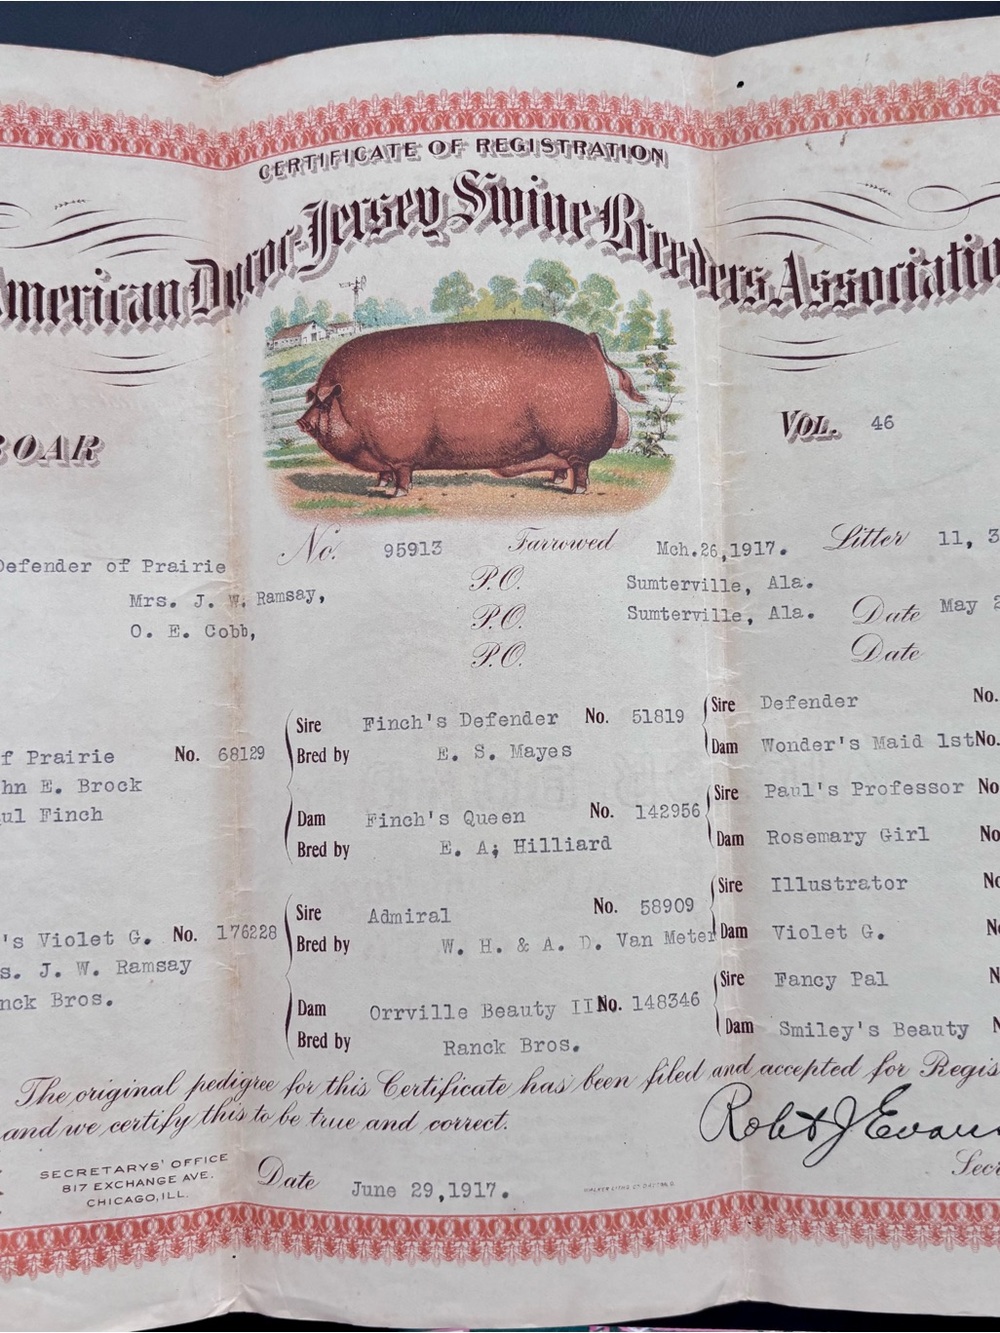 CERTIFICATE OF REGISTRATION
American Duroc-Jersey Swine Breeders Association
BOAR
VOL. 46
No. 95913 Farrowed Mch.26,1917. Litter 11, 3
Defender of Prairie
P.O. Sumterville, Ala.
Mrs. J. W. Ramsay,
P.O. Sumterville, Ala. Date May 2
O. E. Cobb,
P.O. Date
Sire Defender No.
Sire Finch's Defender No. 51819
Dam Wonder's Maid 1st No.
Bred by E. S. Mayes
f Prairie No. 68129
hn E. Brock
Sire Paul's Professor No
ul Finch
Dam Finch's Queen No. 142956
Dam Rosemary Girl No
Bred by E. A; Hilliard
Sire Illustrator No
Sire Admiral No. 58909
's Violet G. No. 176228
Bred by W. H. & A. D. Van Meter
Dam Violet G. N
s. J. W. Ramsay
nck Bros.
Sire Fancy Pal N
Dam Orrville Beauty II No. 148346
Dam Smiley's Beauty N
Bred by Ranck Bros.
The original pedigree for this Certificate has been filed and accepted for Regis
and we certify this to be true and correct.
Robt J Evans
Secr
SECRETARYS' OFFICE
817 EXCHANGE AVE.
CHICAGO, ILL.
Date June 29,1917.